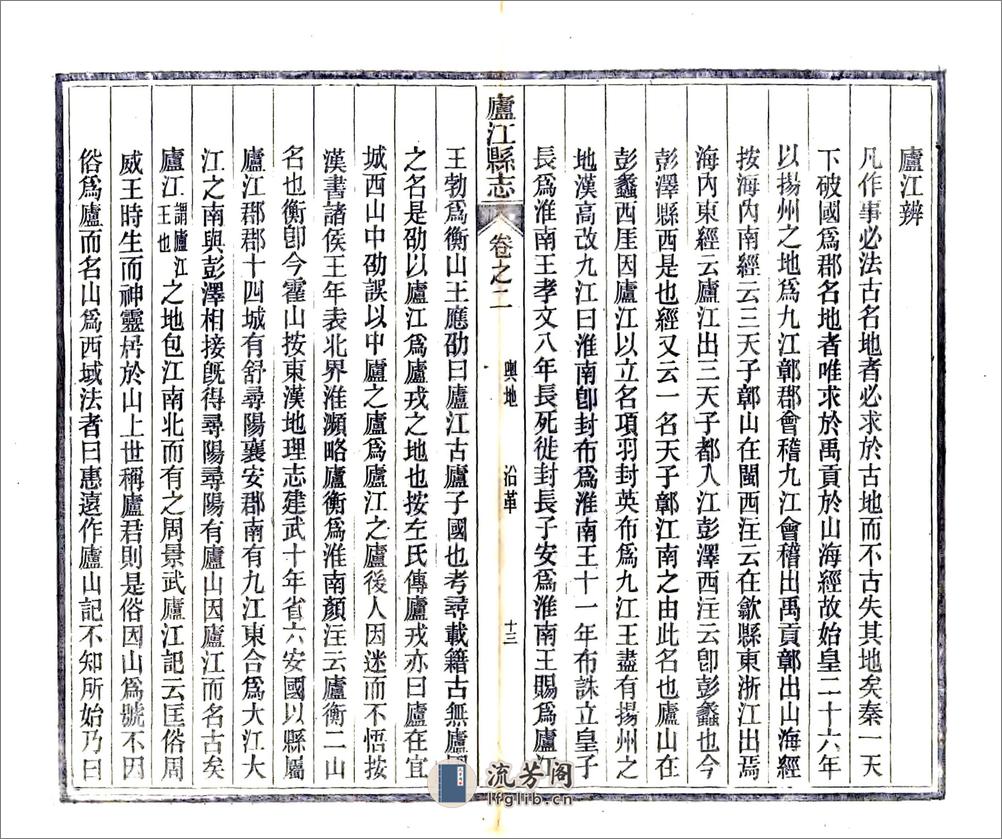 廬江辨
凡作事必法古名地者必求於古地而不古失其地矣秦一天
下破國爲郡名地者唯求於禹貢於山海經故始皇二十六年
以揚州之地爲九江鄣郡會稽九江會稽出禹貢鄣出山海經
按海內南經云三天子鄣山在閩西注云在歙縣東浙江出焉
海內東經云廬江出三天子都入江彭澤西注云卽彭蠡也今
彭澤縣西是也經又云一名天子鄣江南之由此名也廬山在
彭蠡西厓因廬江以立名項羽封英布爲九江王盡有揚州之
地漢高改九江曰淮南卽封布爲淮南王十一年布誅立皇子
長爲淮南王孝文八年長死徙封長子安爲淮南王賜爲廬江
廬江縣志 卷之二 輿地 沿革 十三
王勃爲衡山王應劭曰廬江古廬子國也考尋載籍古無廬國
之名是劭以廬江爲廬戎之地也按左氏傳廬戎亦曰廬在宜
城西山中劭誤以中廬之廬爲廬江之廬後人因迷而不悟按
漢書諸侯王年表北界淮瀕略廬衡爲淮南顏注云廬衡二山
名也衡卽今霍山按東漢地理志建武十年省六安國以縣屬
廬江郡郡十四城有舒尋陽襄安郡南有九江東合爲大江大
江之南與彭澤相接旣得尋陽尋陽有廬山因廬江而名古矣
廬江謂廬江王也之地包江南北而有之周景武廬江記云匡俗周
威王時生而神靈居於山上世稱廬君則是俗因山爲號不因
俗爲廬而名山爲西域法者曰惠遠作廬山記不知所始乃曰
流芳阁
lfglib.cn